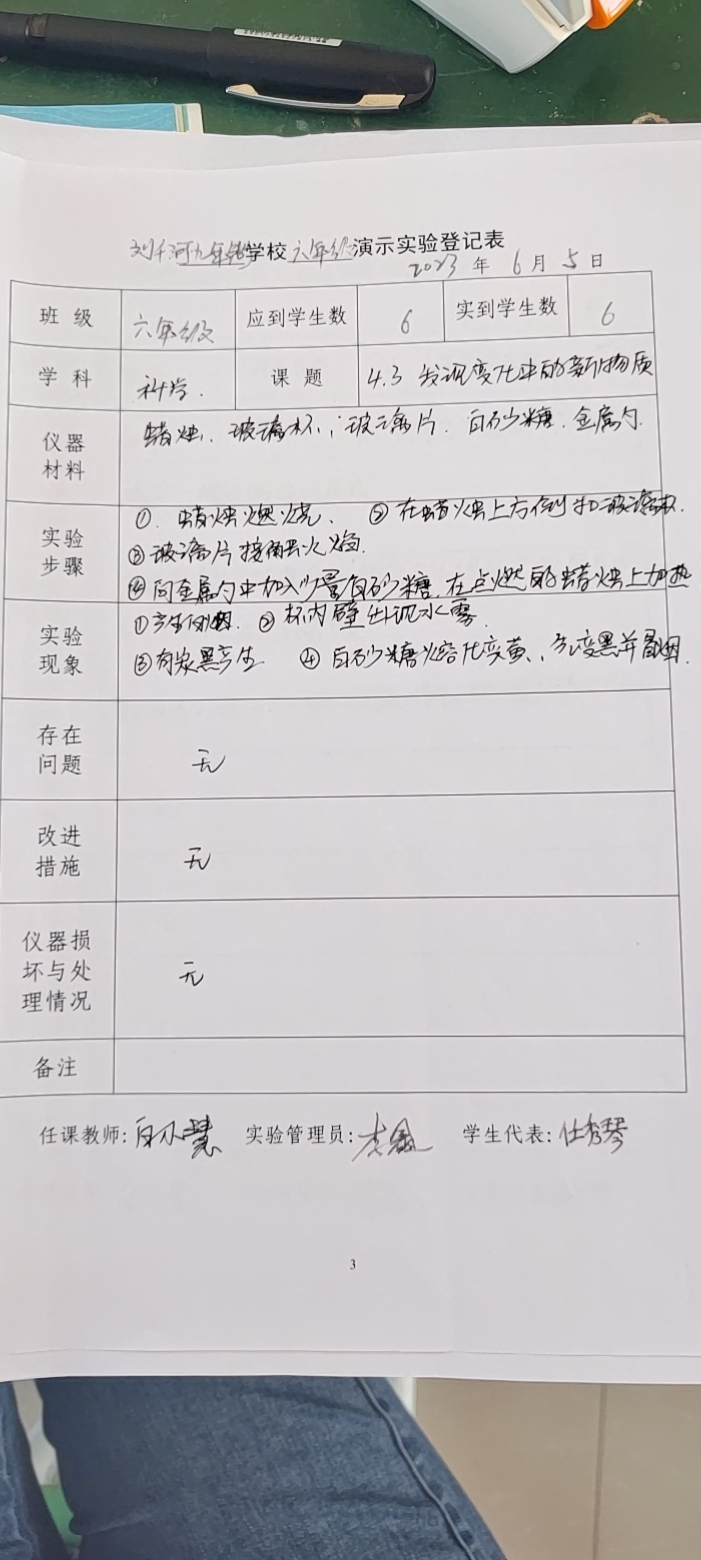 刘千河九年制学校六年级演示实验登记表
2023年6月5日
班级 六年级 应到学生数 6 实到学生数 6
学科 科学. 课题 4.3 发现变化中的新物质
仪器材料 蜡烛、玻璃杯、玻璃片、白砂糖、金属勺.
实验步骤 ①. 蜡烛燃烧、 ②在蜡烛上方倒扣玻璃杯.
③玻璃片接触火焰.
④向金属勺中加入少量白砂糖,在点燃的蜡烛上加热
实验现象 ①产生 ②杯内壁出现水雾.
③有炭黑产生 ④白砂糖熔化变黄、变黑并冒烟.
存在问题 无
改进措施 无
仪器损坏与处理情况 无
备注
任课教师:白小慧 实验管理员: 学生代表:任秀琴
3